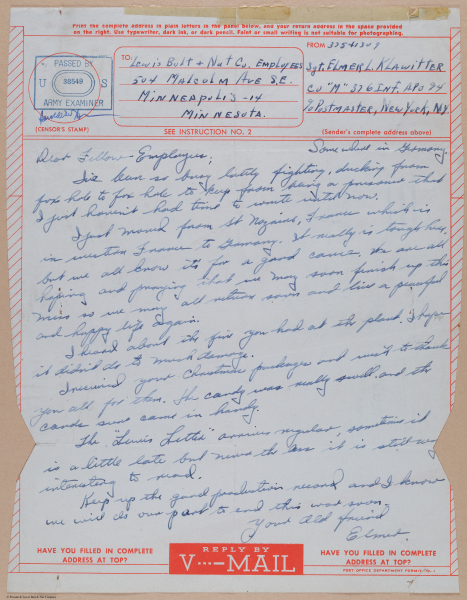 Print the complete address in plain letters in the panel below, and your return address in the space provided
on the right. Use typewriter, dark ink, or dark pencil. Faint or small writing is not suitable for photographing.
PASSED BY
U S
38540
ARMY EXAMINER
(CENSOR'S STAMP)
TO:
Lewis Bolt & Nut Co. Employees
504 Malcolm Ave S.E.
Minneapolis-14
Minnesota.
SEE INSTRUCTION NO. 2
FROM
Sgt. Elmer L. Klawitter
Co "M" 376 Inf. APO 94
% Postmaster, New York, N.Y.
(Sender's complete address above)
Somewhere in Germany.
Dear Fellow Employees;
I've been so busy lately fighting, ducking from
fox hole to fox hole to keep from being a that
I just haven't had time to write until now.
I just moved from St Nazaire, France which is
in western France to Germany. It really is tough here,
but we all know it's for a good cause. We are all
hoping and praying that we may soon finish up this
mess so we may all return soon and live a peaceful
and happy life again.
I heard about the fire you had at the plant. I hope
it didn't do to much damage.
I received your Christmas packages and wish to thank
you all for them. The candy was really swell and the
cards sure came in handy.
The "Lewis Letter" arrives regular, sometimes it
is a little late but never the less it is still very
interesting to read.
Keep up the good production record and I know
we will do our part to end this war soon.
Your Old friend
Elmer.
HAVE YOU FILLED IN COMPLETE
ADDRESS AT TOP?
REPLY BY
V···—MAIL
HAVE YOU FILLED IN COMPLETE
ADDRESS AT TOP?